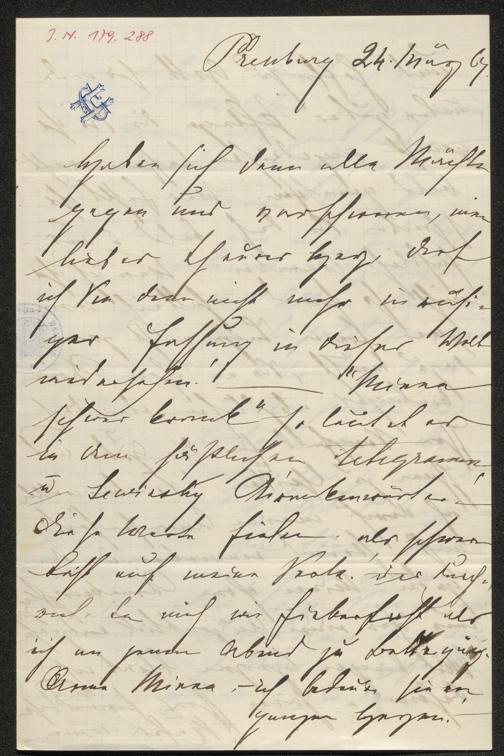 J. N. 179.288
Presburg 24. März 67
Haben sich denn alle Mächte
gegen uns verschworen, mein
lieber theurer Herz, darf
ich Sie denn nicht mehr in ruhi-
ger Fassung in dieser Welt
wiedersehn! — "Minna
schwer krank" so lautet es
in dem häßlichen Telegramm
Lewinsky
diese Worte fielen als schwere
Last auf meine Seele.
mich wie Fieberfrost als
ich an jenem Abend zu
Arme Minna, – ich bedaure sie von
ganzem Herzen. –